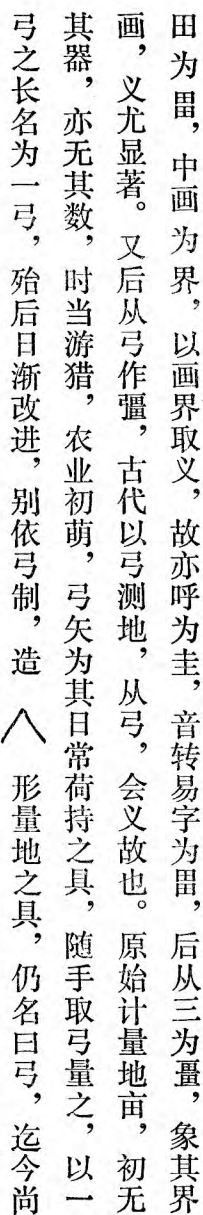 田为畕，中画为界，以画界取义，故亦呼为圭，音转易字为畕，后从三为畺，象其界
画，义尤显著。又后从弓作彊，古代以弓测地，从弓，会义故也。原始计量地亩，初无
其器，亦无其数，时当游猎，农业初萌，弓矢为其日常荷持之具，随手取弓量之，以一
弓之长名为一弓，殆后日渐改进，别依弓制，造 ㅅ 形量地之具，仍名曰弓，迄今尚